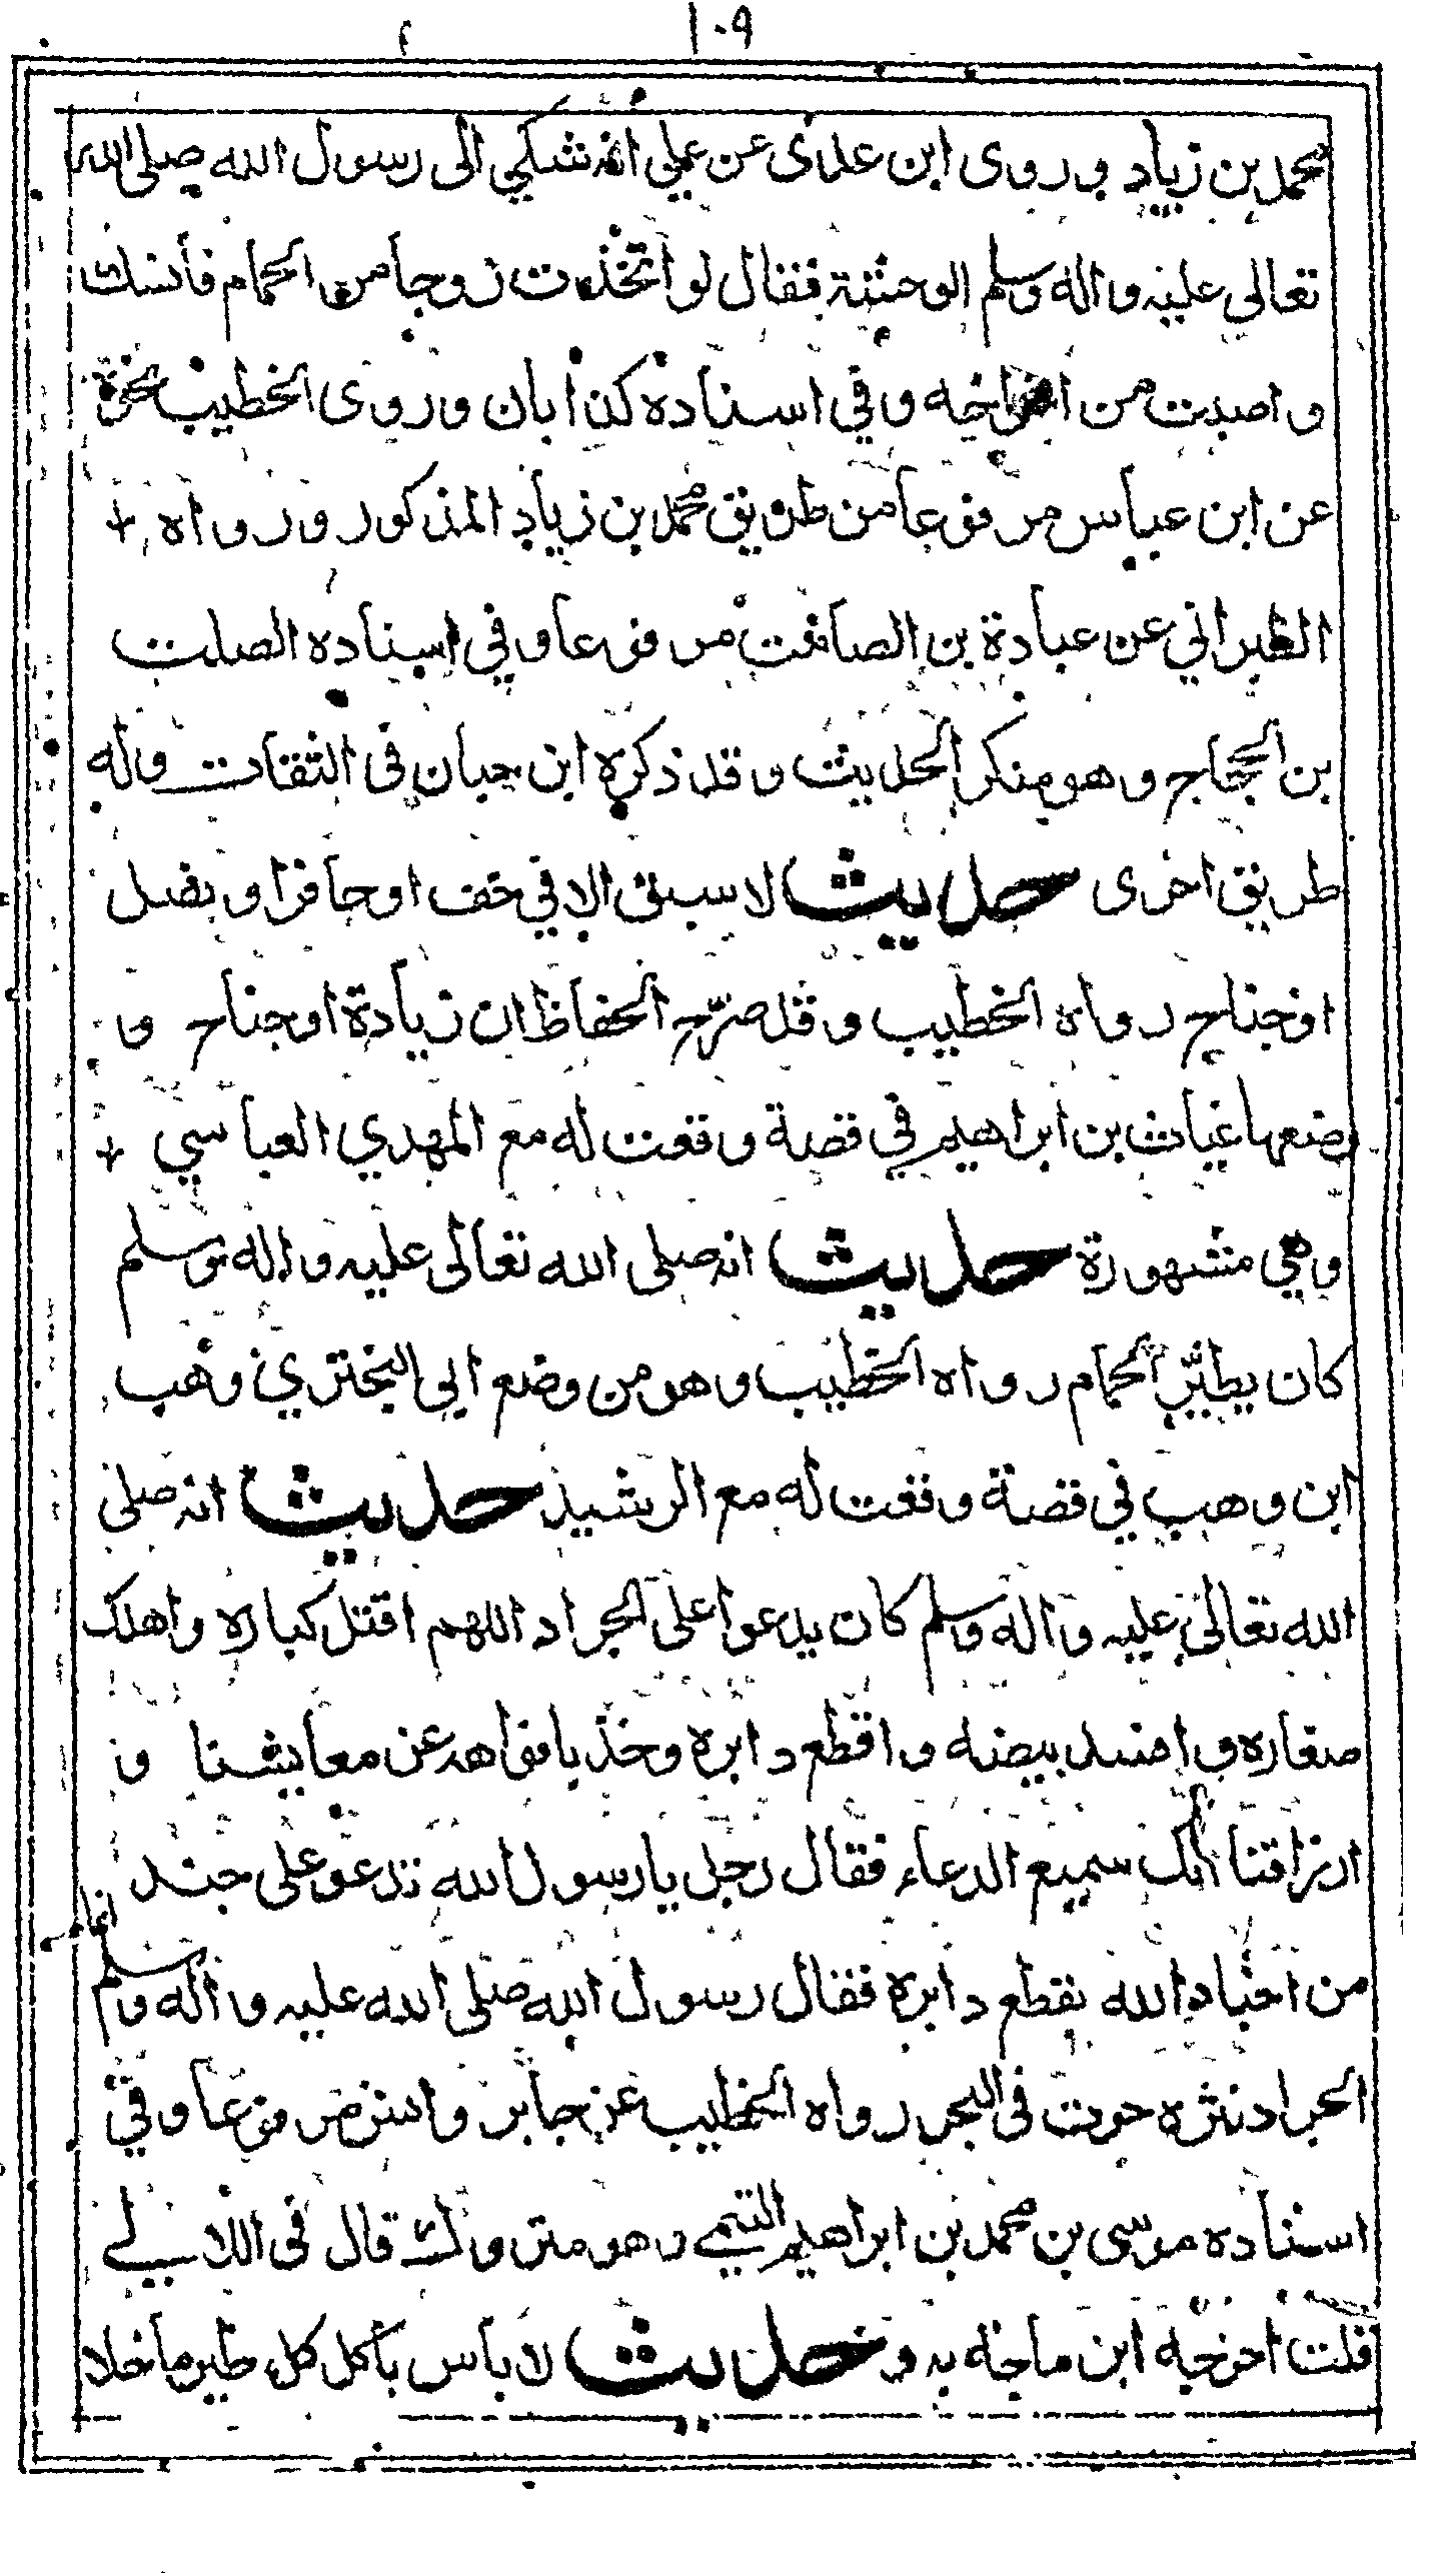 ١٠٩
محمد بن زياد وروى ابن عدى عن علي انه شكي الى رسول الله صلى الله
تعالى عليه واله وسلم الوحشة فقال لو اتخذت زوجا من الحمام فأنسك
واصبت من افراخه وفي اسناده كذابان وروى الخطيب نحوه
عن ابن عباس مرفوعا من طريق محمد بن زياد المذكور ورواه
الطبراني عن عبادة بن الصامت مرفوعا وفي اسناده الصلت
بن الحجاج وهو منكر الحديث وقد ذكره ابن حبان فى الثقات وله
طريق اخرى حديث لا سبق الا في خف او حافر او نصل
او جناح رواه الخطيب وقد صرّح الحفاظ ان زيادة او جناح و
وضعها غياث بن ابراهيم في قصة وقعت له مع المهدي العباسي
وهي مشهورة حديث انه صلى الله تعالى عليه واله وسلم
كان يطيّر الحمام رواه الخطيب وهو من وضع ابى البختري وهب
ابن وهب في قصة وقعت له مع الرشيد حديث انه صلى
الله تعالى عليه واله وسلم كان يدعوا على الجراد اللهم اقتل كباره واهلك
صغاره وافسد بيضه واقطع دابره وخذ بافواهه عن معايشنا و
ارزاقنا انك سميع الدعاء فقال رجل يا رسول الله تدعو على جند
من اجناد الله بقطع دابره فقال رسول الله صلى الله عليه واله وسلم انما
الجراد نثره حوت فى البحر رواه الخطيب عن جابر وانس مرفوعا وفي
اسناده موسى بن محمد بن ابراهيم التيمي وهو متروك قال فى اللالي
قلت اخرجه ابن ماجه به و حديث لا باس بأكل كل طير ما خلا